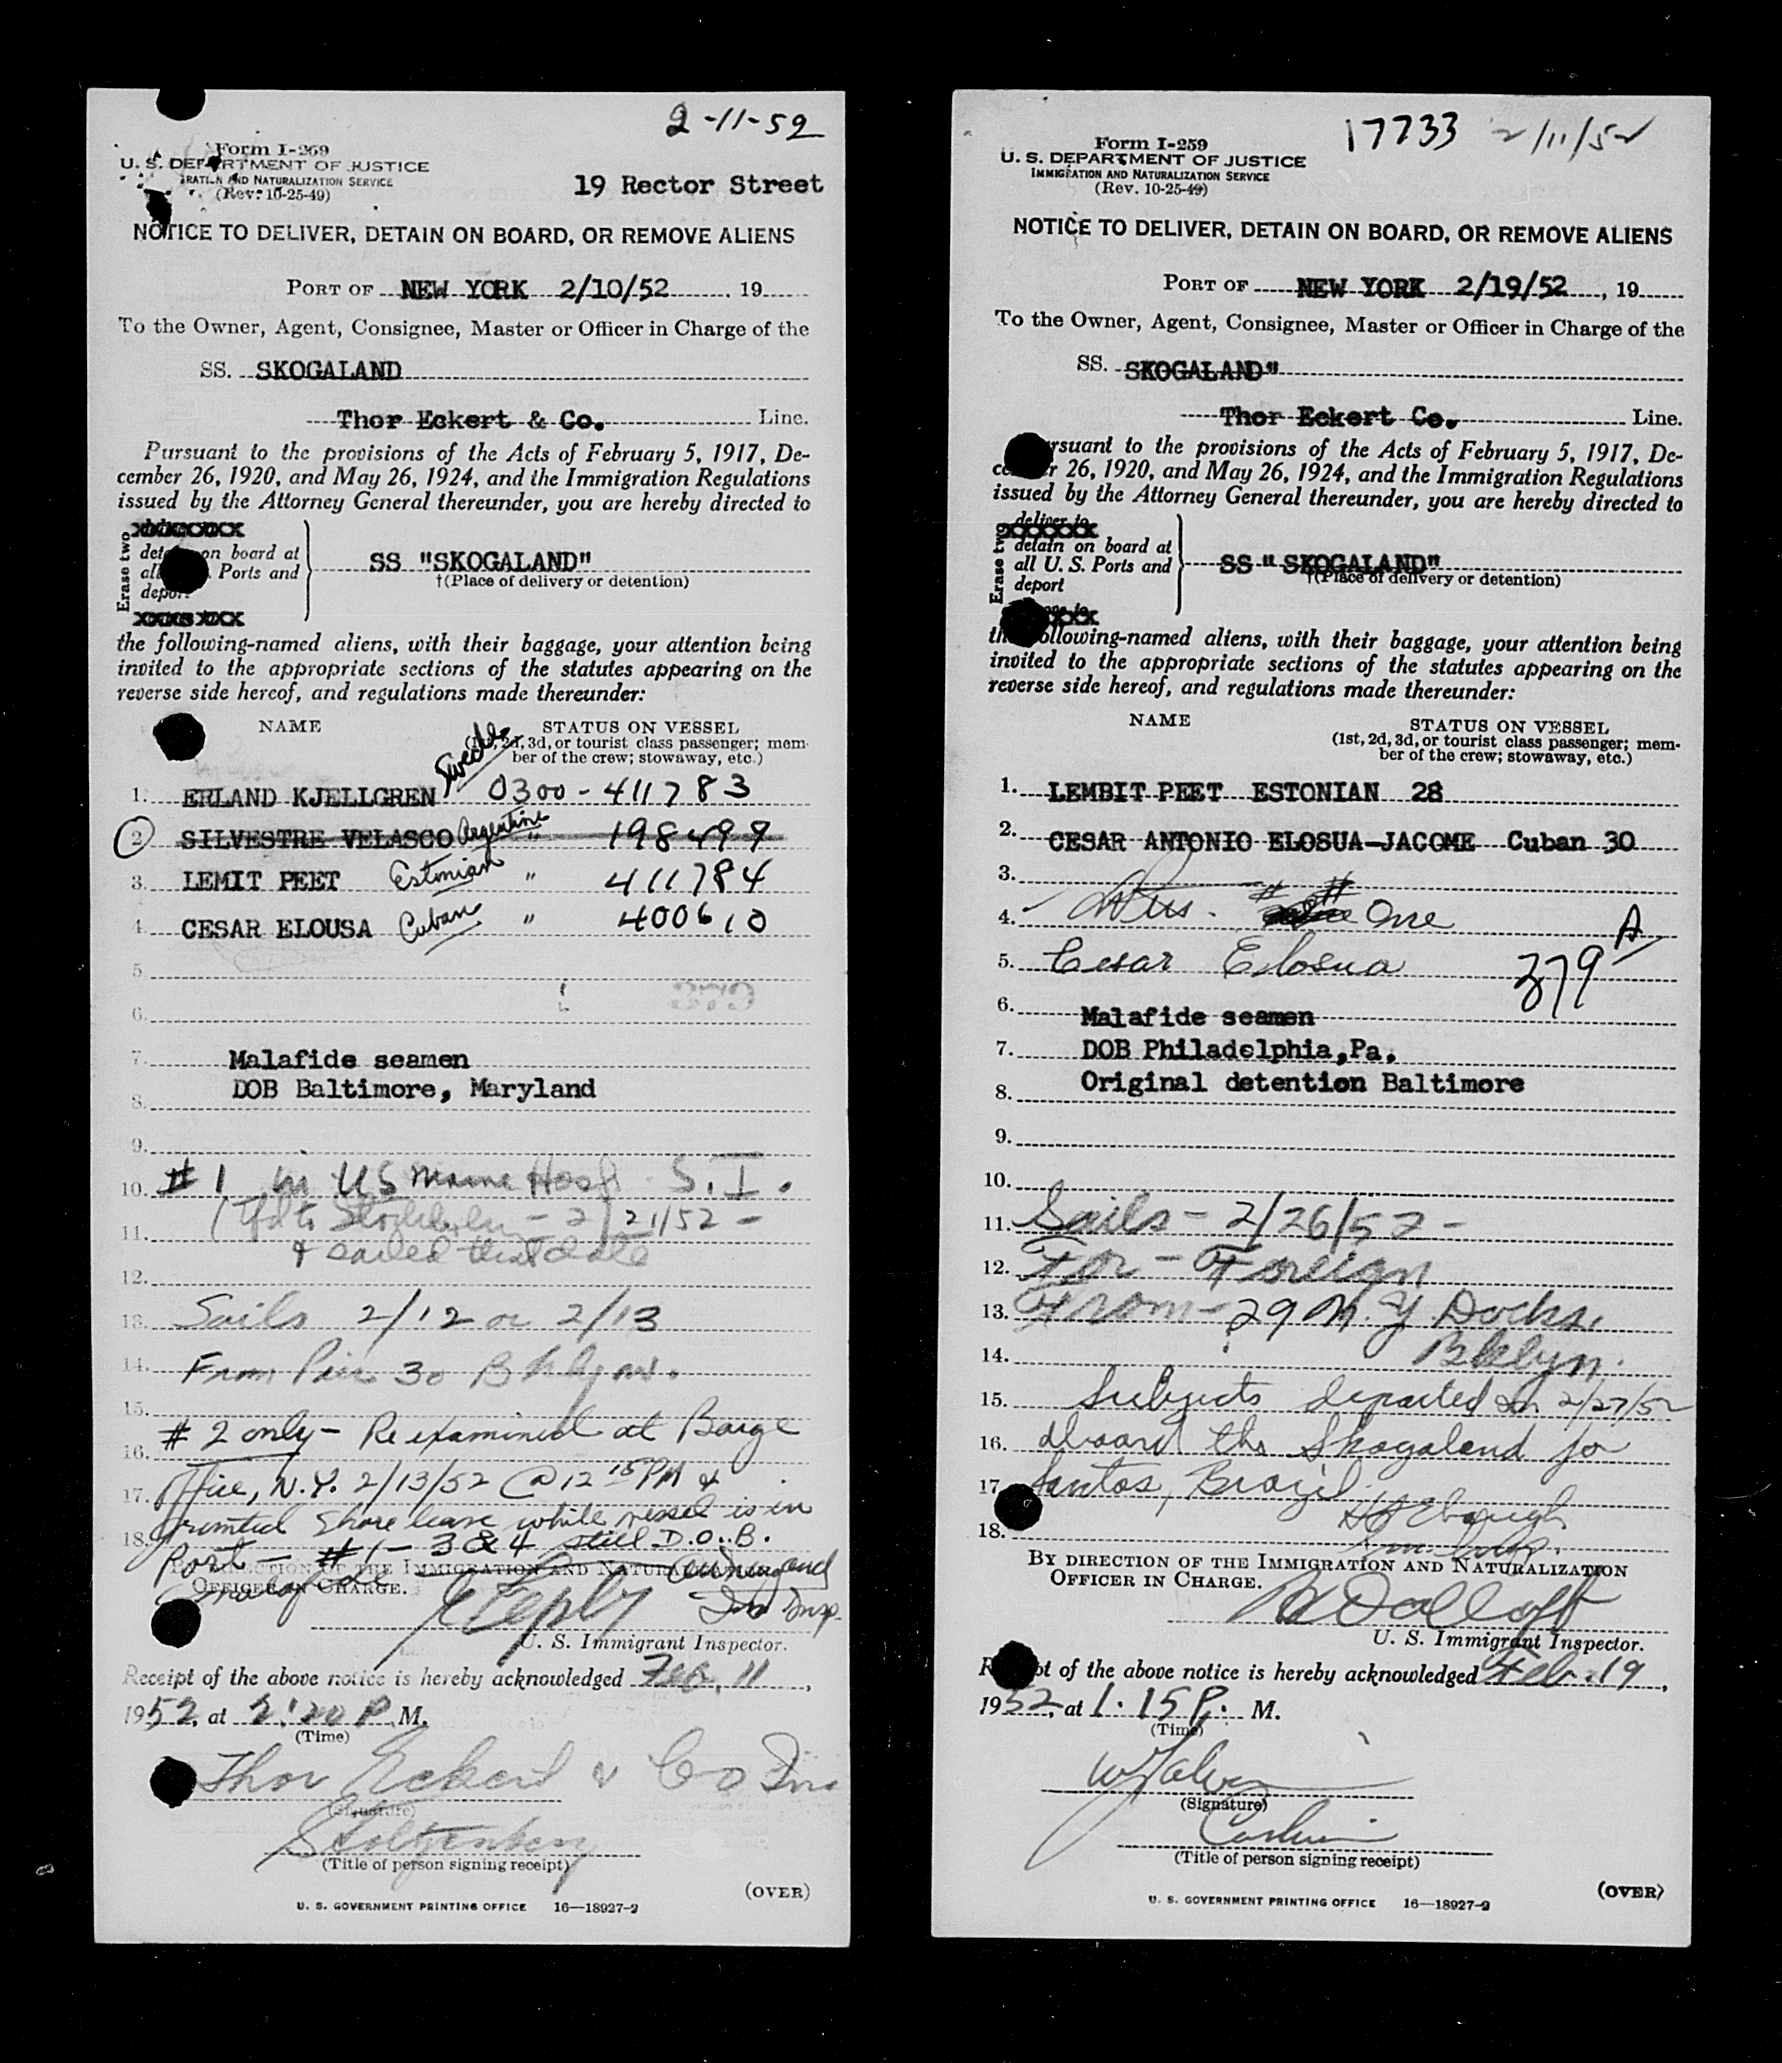 2-11-52
Form I-269
U. S. DEPARTMENT OF JUSTICE
AND NATURALIZATION SERVICE
(Rev. 10-25-49)
19 Rector Street
NOTICE TO DELIVER, DETAIN ON BOARD, OR REMOVE ALIENS
PORT OF NEW YORK 2/10/52, 19
To the Owner, Agent, Consignee, Master or Officer in Charge of the
SS. SKOGALAND
Thor Eckert & Co. Line.
Pursuant to the provisions of the Acts of February 5, 1917, De-
cember 26, 1920, and May 26, 1924, and the Immigration Regulations
issued by the Attorney General thereunder, you are hereby directed to
Erase two
on board at
Ports and
SS "SKOGALAND"
†(Place of delivery or detention)
the following-named aliens, with their baggage, your attention being
invited to the appropriate sections of the statutes appearing on the
reverse side hereof, and regulations made thereunder:
NAME STATUS ON VESSEL
(1st, 2d, 3d, or tourist class passenger; mem-
ber of the crew; stowaway, etc.)
1. ERLAND KJELLGREN Swede 0300-411783
2 SILVESTRE VELASCO Argentine " 198499
3. LEMIT PEET Estonian " 411784
4. CESAR ELOUSA Cuban " 400610
5
6.
7. Malafide seamen
DOB Baltimore, Maryland
8.
9.
10. #1 in US Marine Hosp S.I.
11. (Tfd to 2/21/52 -
& sailed that date
12.
13. Sails 2/12 or 2/13
14. From Pier 30 Bklyn.
15.
#2 only - Reexamined at Barge
16.
Office, N.Y. 2/13/52 @ 12 15 PM &
17.
granted shore leave while vessel is in
18.
Port - #1 - 3 & 4 still D.O.B.
BY DIRECTION OF THE IMMIGRATION AND NATURALIZATION
OFFICER IN CHARGE.
Imm Insp.
U. S. Immigrant Inspector.
Receipt of the above notice is hereby acknowledged Feb. 11,
1952, at 2:20 P. M.
(Time)
Thor Eckert & Co Inc
(Signature)
Stoltzenberg
(Title of person signing receipt)
(OVER)
U. S. GOVERNMENT PRINTING OFFICE 16—18927-2
17733 2/11/52
Form I-259
U. S. DEPARTMENT OF JUSTICE
IMMIGRATION AND NATURALIZATION SERVICE
(Rev. 10-25-49)
NOTICE TO DELIVER, DETAIN ON BOARD, OR REMOVE ALIENS
PORT OF NEW YORK 2/19/52, 19
To the Owner, Agent, Consignee, Master or Officer in Charge of the
SS. SKOGALAND"
Thor Eckert Co. Line.
Pursuant to the provisions of the Acts of February 5, 1917, De-
cember 26, 1920, and May 26, 1924, and the Immigration Regulations
issued by the Attorney General thereunder, you are hereby directed to
Erase two
deliver to
detain on board at
all U. S. Ports and
deport
SS " SKOGALAND"
†(Place of delivery or detention)
the following-named aliens, with their baggage, your attention being
invited to the appropriate sections of the statutes appearing on the
reverse side hereof, and regulations made thereunder:
NAME STATUS ON VESSEL
(1st, 2d, 3d, or tourist class passenger; mem-
ber of the crew; stowaway, etc.)
1. LEMBIT PEET ESTONIAN 28
2. CESAR ANTONIO ELOSUA-JACOME Cuban 30
3.
4. One
5. Cesar Elosua 379 A
6. Malafide seamen
7. DOB Philadelphia, Pa.
8. Original detention Baltimore
9.
10.
11. Sails - 2/26/52 -
12. For - Foreign
13. From - 29 N.Y Docks.
14. Bklyn.
15. Subjects departed on 2/27/52
16. aboard the Skogaland for
17. Santos, Brazil.
18.
BY DIRECTION OF THE IMMIGRATION AND NATURALIZATION
OFFICER IN CHARGE.
U. S. Immigrant Inspector.
Receipt of the above notice is hereby acknowledged Feb. 19,
1952, at 1.15 P. M.
(Time)
(Signature)
(Title of person signing receipt)
(OVER)
U. S. GOVERNMENT PRINTING OFFICE 16—18927-2